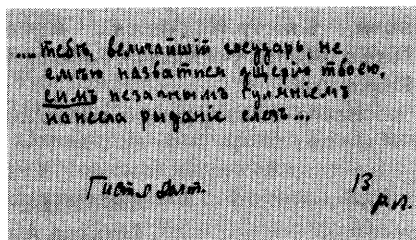 .... тебѣ, величайшій государь, не
смѣю назватися дщерію твоею,
симъ незачнымъ гулянiемъ
нанесла рыданіе слезъ...
13